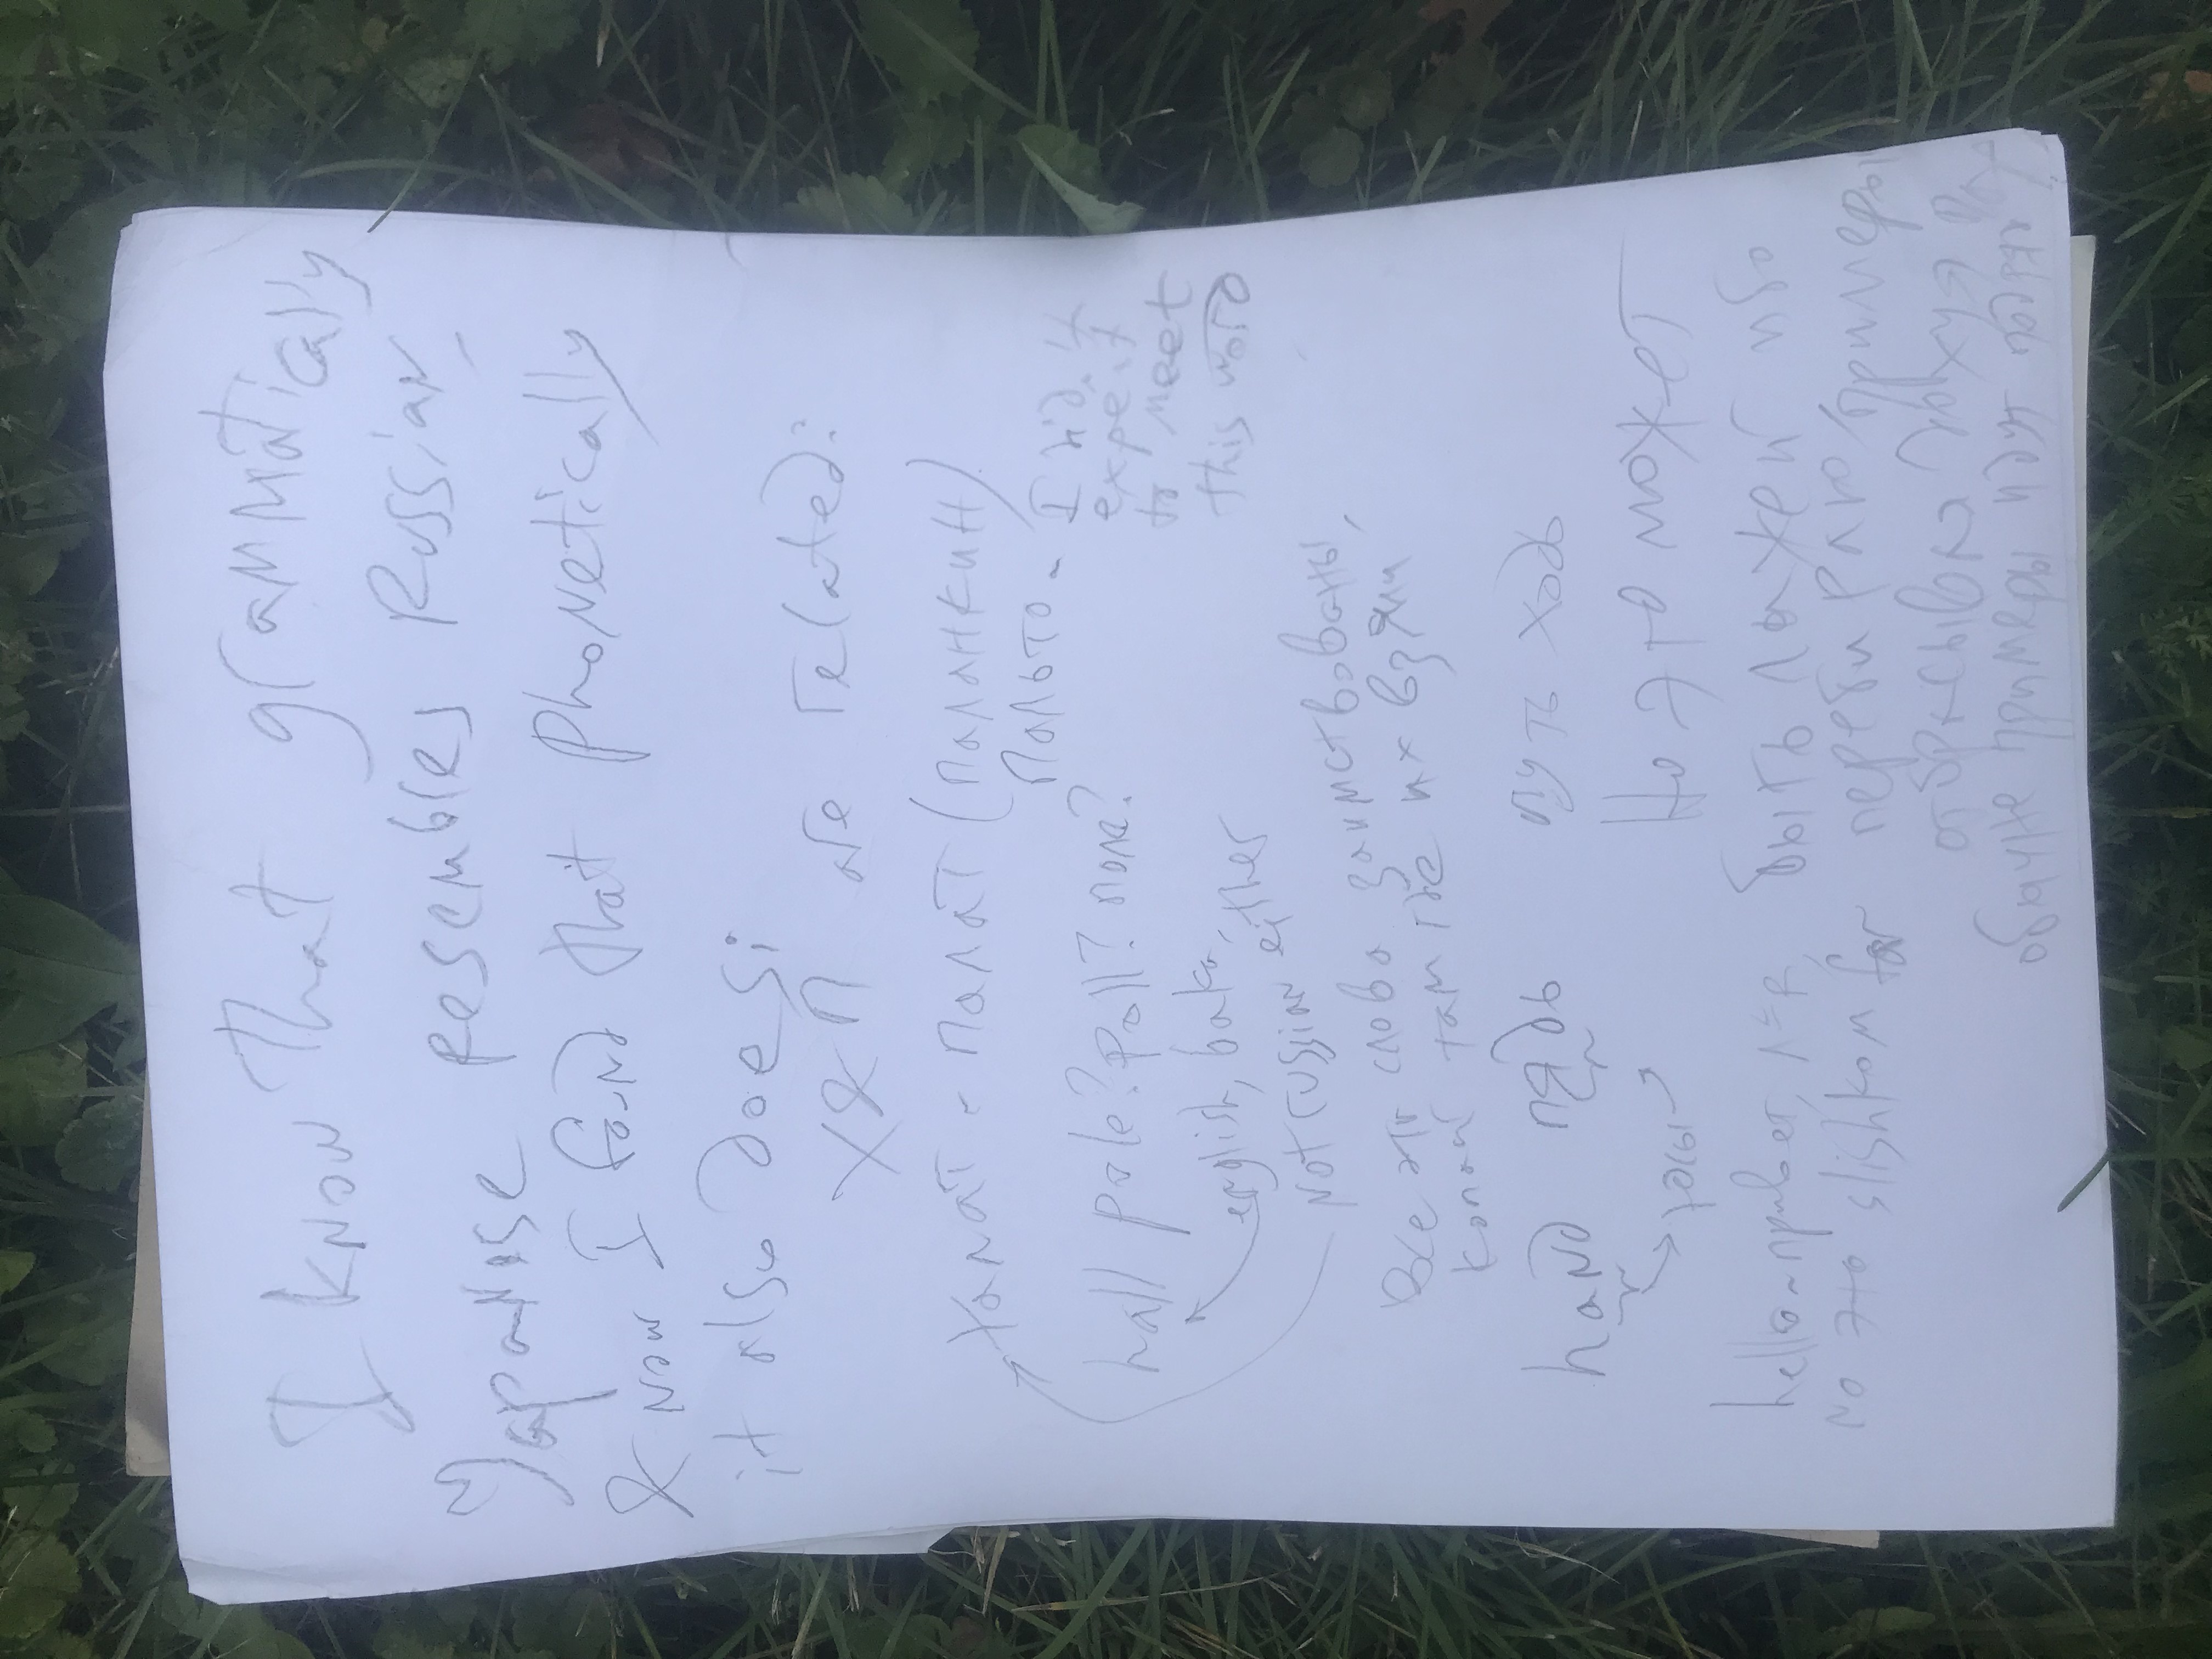 I know that grammatically
Japanese resembles Russian,
& now I found that phonetically
it also does:
Х & П are related:
халат - палат (паланкин)
пальто - I didn't
expect
to meet
this word
hall pole? poll? поле?
english, baka,
not russian either
Все эти слова заимствованы,
копай там где их взяли
hand пядь
юсы
путь ходь
hello - привет, Л=R,
но это slishkom far
Но это может
быть лажей ибо
перебираю примеры
отбрасывая
обычне примеры идут подряд